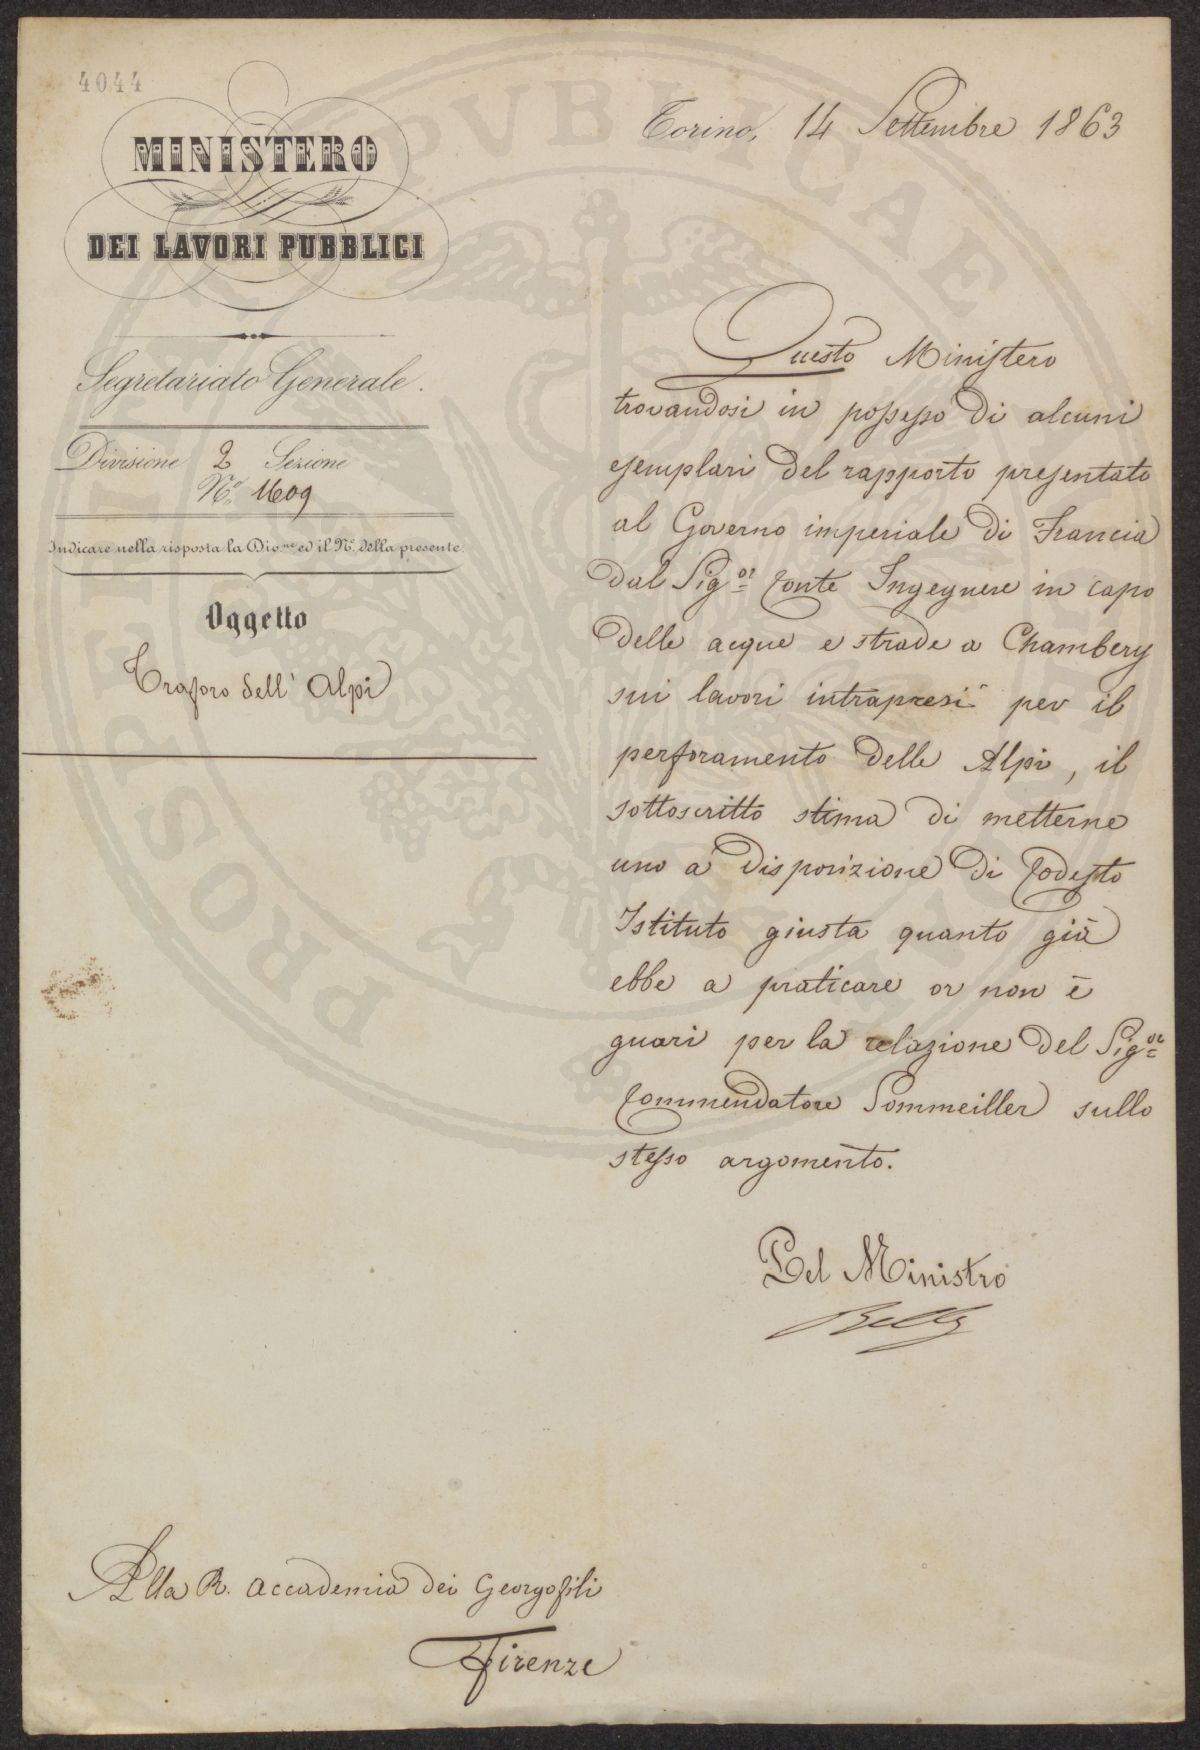 4044
MINISTERO
DEI LAVORI PUBBLICI
Segretariato Generale.
Divisione 2 Sezione
N.º 1609
Indicare nella risposta la Div.ne ed il Nº della presente.
Oggetto
Traforo dell' Alpi
Torino, 14 Settembre 1863
Questo Ministero
trovandosi in possesso di alcuni
esemplari del rapporto presentato
al Governo imperiale di Francia
dal Sig.or Conte Ingegnere in capo
delle acque e strade a Chambery
sui lavori intrapresi per il
perforamento delle Alpi, il
sottoscritto stima di metterne
uno a disposizione di Codesto
Istituto giusta quanto già
ebbe a praticare or non è
guari per la relazione del Sig.or
Commendatore Sommeiller sullo
stesso argomento.
Pel Ministro
Alla R. Accademia dei Georgofili
Firenze
PROSPERITATI PUBLICAE AUGENDAE